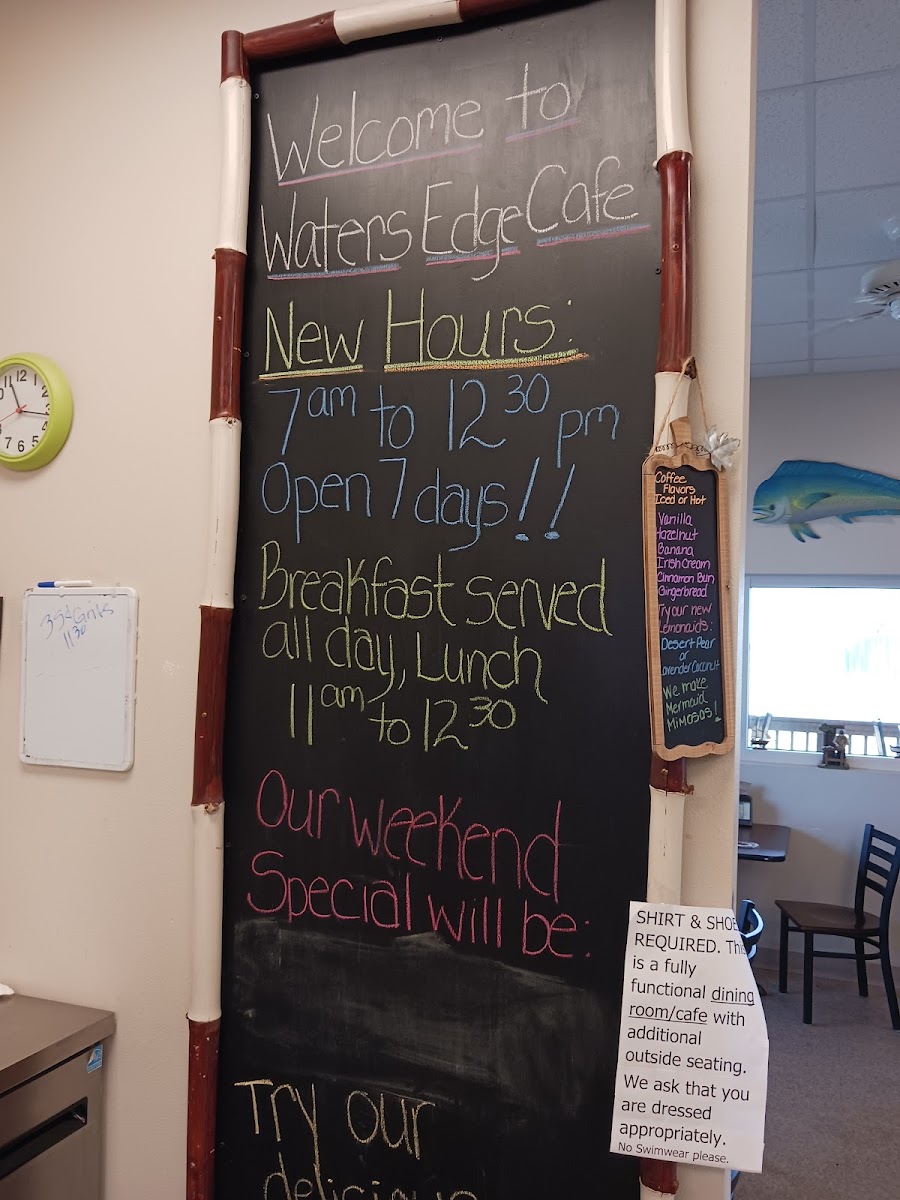 Welcome to
Waters Edge Cafe
New Hours:
7am to 12 30 pm
Open 7 days!!
Breakfast served
all day, Lunch
11am to 12 30
Our weekend
Special will be:
Try our
delicious
Coffee
Flavors
Iced or Hot
Vanilla
Hazelnut
Banana
Irish Cream
Cinnamon Bun
Gingerbread
Try our new
Lemonaids:
Desert Pear
or
Lavender Coconut
We make
Mermaid
Mimosas!
SHIRT & SHOE
REQUIRED. This
is a fully
functional dining
room/cafe with
additional
outside seating.
We ask that you
are dressed
appropriately.
No Swimwear please.
11 12 1
2
3
4
5
6
7
8
Grits
11 30